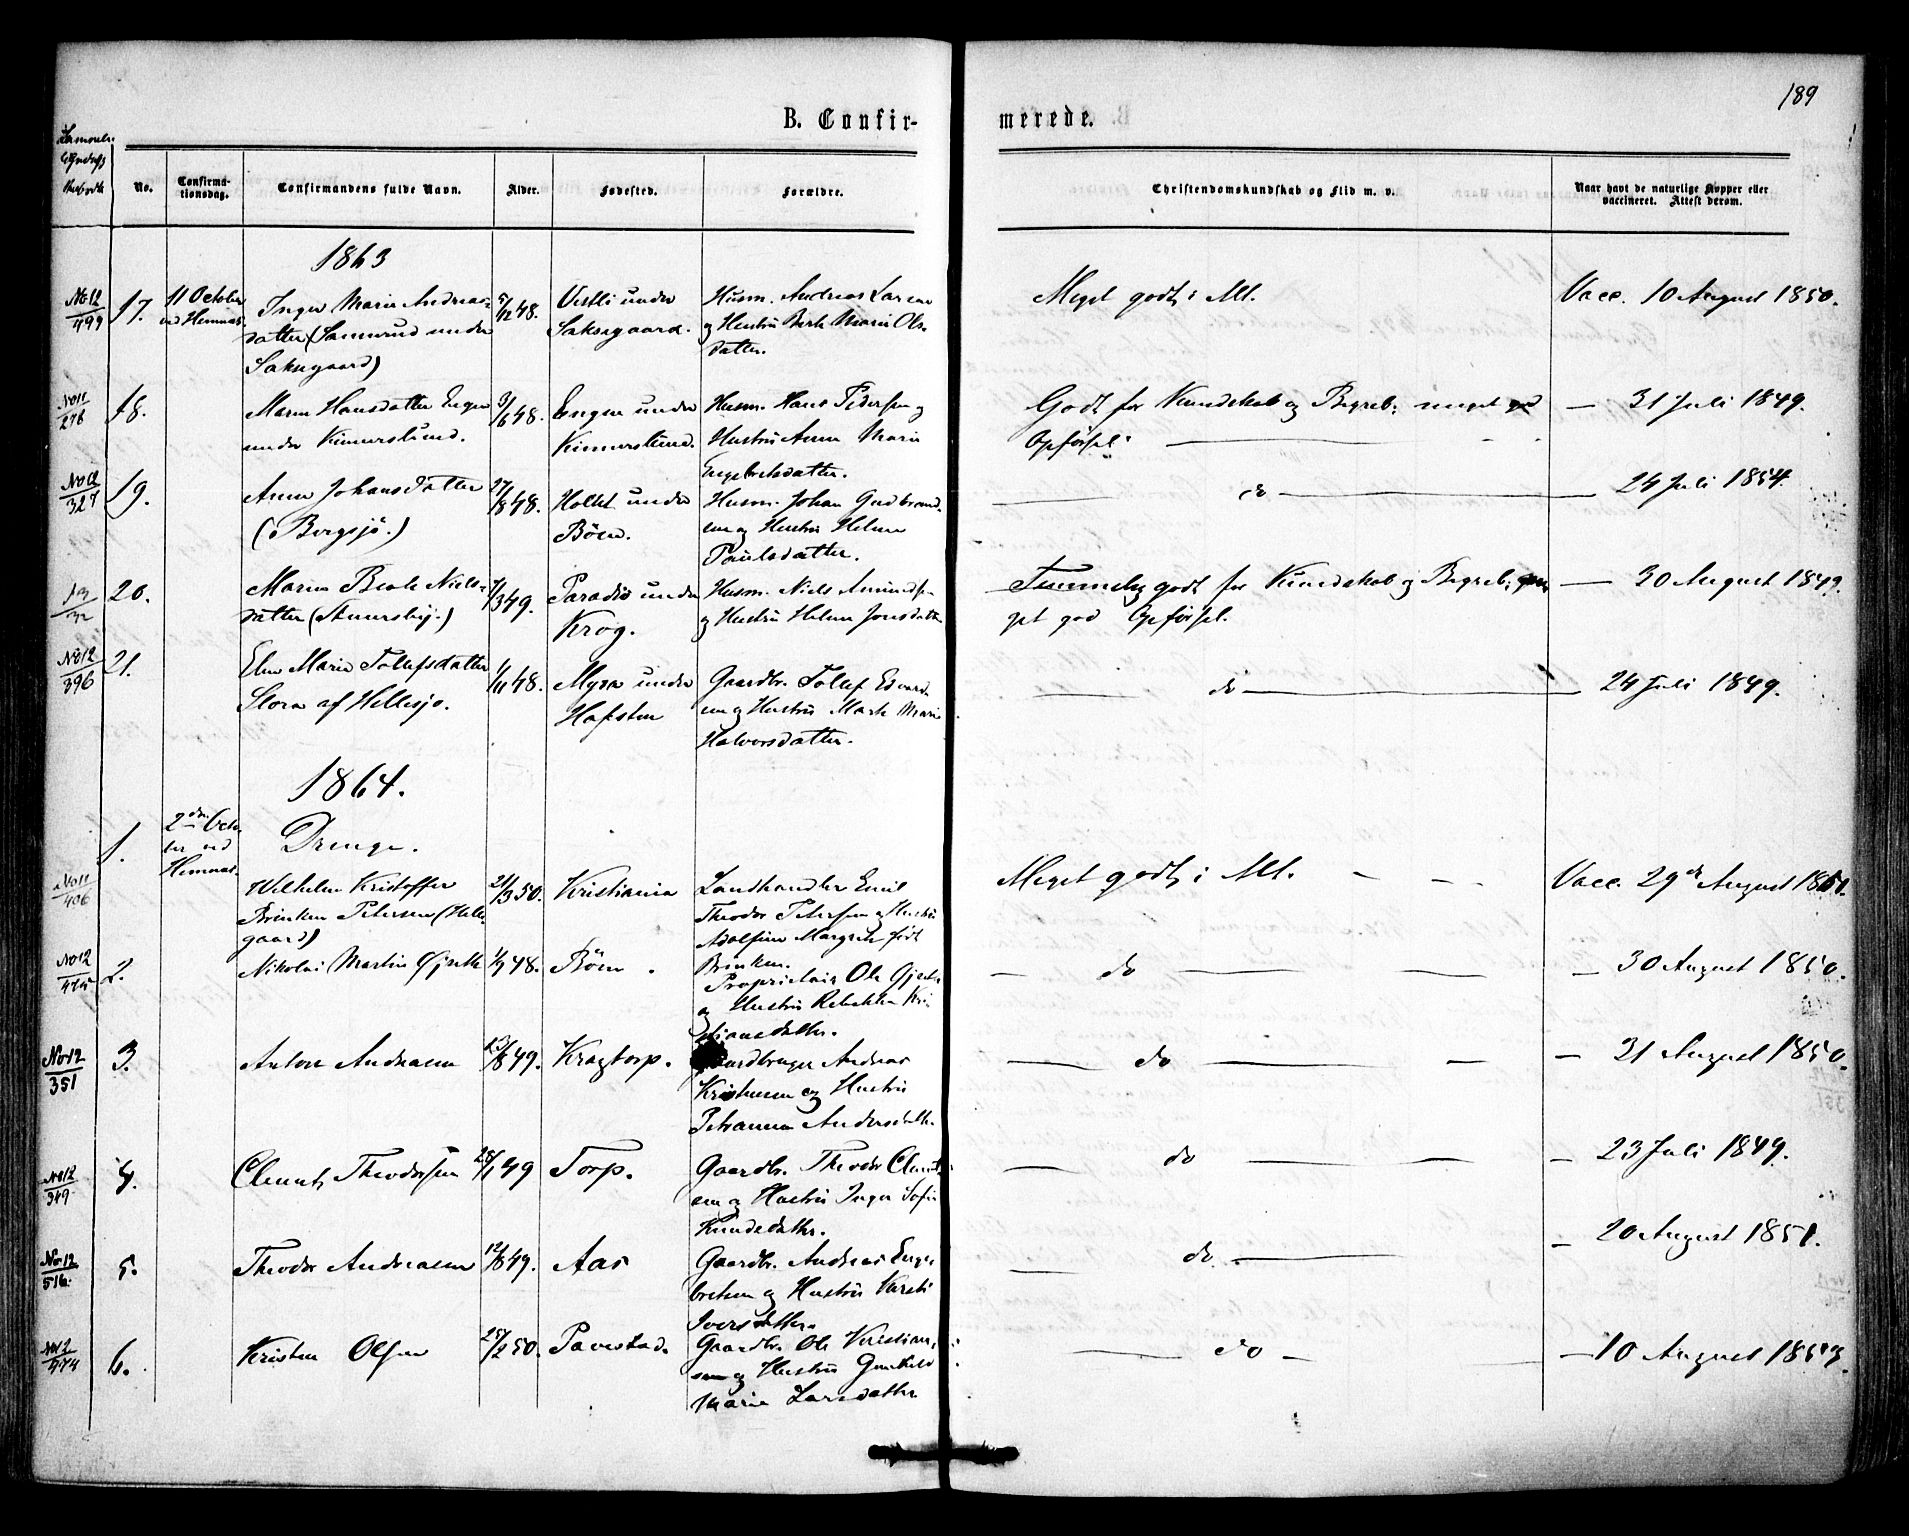 189
B. Confir-
merede.
No.
Confirma-
tionsdag.
Confirmandens fulde Navn.
Alder.
Fødested.
Forældre.
Christendomskundskab og Flid m. v.
Naar havt de naturlige Kopper eller
vaccineret. Attest derom.
1863
No 12
499
17.
11 October
ved Hemnæs
Inger Marie Andreas-
datter (Sannerud under
Saksegaard)
5/12 48.
Vestli under
Saksegaard.
Husm. Andreas Larsen
og Hustru Berte Marie Ols-
datter.
Meget godt i Alt.
Vacc. 10 August 1850.
No 11
278
18.
Maren Hansdatter Engen
under Kinnerslund.
3/6 48.
Engen under
Kinnerslund.
Husm. Hans Pedersen og
Hustru Anne Marie
Engebretsdatter.
Godt for Kundskab og Begreb; meget god
Opførsel
— 31 Juli 1849.
No 12
327
19.
Anne Johansdatter
(Bergsjø.)
27/8 48.
Holtet under
Böen.
Husm. Johan Gudbrand-
sen og Hustru Helene
Paulsdatter.
do
24 Juli 1854.
13
32
20.
Maren Beate Niels-
datter (Aamersby.)
1/3 49.
Paradis under
Krog.
Husm. Niels Amundsen
og Hustru Helene Jonsdatter
Temmelig godt for Kundskab og Begreb;
get god Opførsel.
— 30 August 1849.
No 12
396
21.
Elen Marie Tollefsdatter
Slora af Hellesjø.
1/11 48.
Myra under
Hafsten
Gaardbr. Tollef Edvard-
sen og Hustru Marte Marie
Halvorsdatter.
do
24 Juli 1849.
1864.
Drenge.
1.
2den Octo-
ber ved
Hemnæs.
No 11
406
Wilhelm Kristoffer
Brinken Petersen (Helle-
gaard)
21/3 50.
Kristiania
Landhandler Emil
Theodor Petersen og Hustru
Adolfine Margrete født
Brinken.
Meget godt i Alt.
Vacc. 29de August 1851.
No 12
2.
Nikolai Martin Gjerte
1/9 48.
Böen.
Proprietair Ole Gjerte
og Hustru Rebekka Kri-
stiansdatter.
do
— 30 August 1850.
No 12
351
3.
Anton Andreasen
23/8 49.
Kragtorp.
Gaardbruger Andreas
Kristensen og Hustru
Johanna Andersdatter.
do
— 21 August 1850.
No 12
349
4.
Clement Theodorsen
28/1 49
Torp.
Gaardbr. Theodor Clement-
sen og Hustru Inger Sofie
Knudsdatter.
do
— 23 Juli 1849.
No 12
516.
5.
Theodor Andreasen
12/8 49.
Aas
Gaardbr. Andreas Enge-
bretsen og Hustru Kersti
Iversdatter.
do.
— 20 August 1851.
No 12
474
6.
Kristen Olsen
25/2 50.
Pavestad.
Gaardbr. Ole Kristian-
sen og Hustru Gunhild
Marie Larsdatter
do
— 10 August 1853.